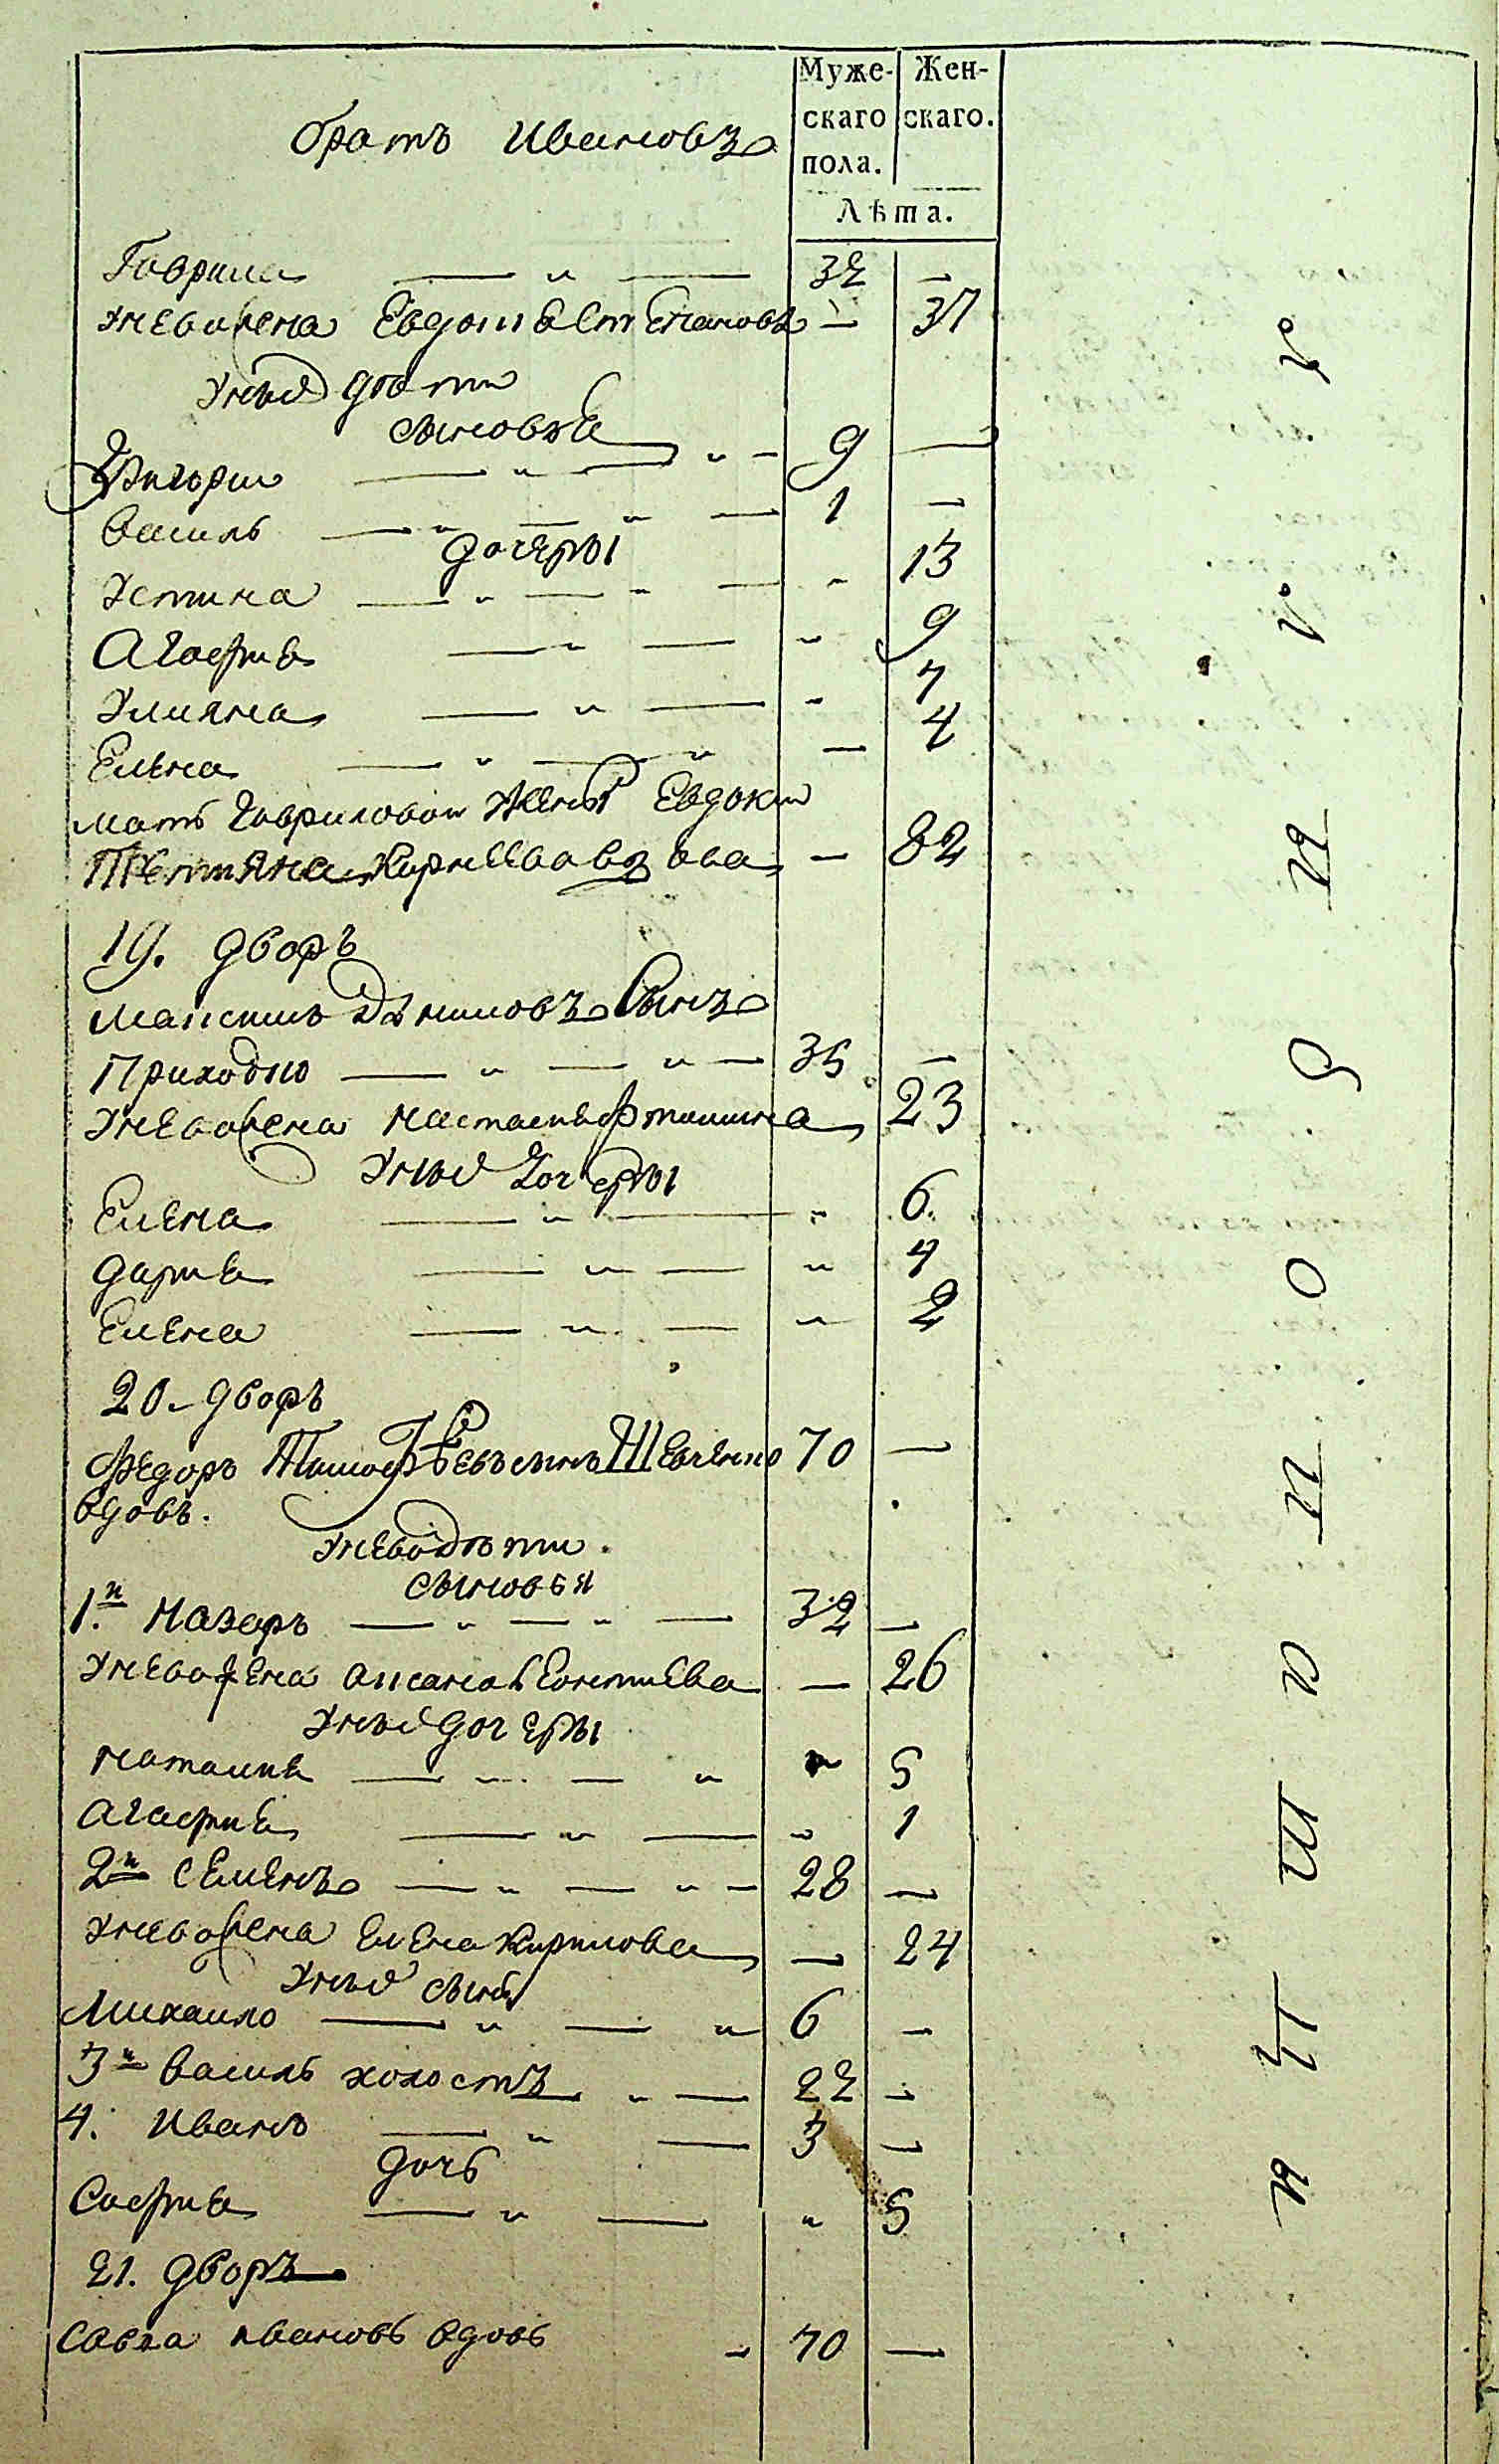 Муже-
скаго
пола.
Жен-
скаго.
Лѣта.
братъ Ивановъ
Гаврила 32 —
У него жена Евдокия Степанова — 37
У них дѣти
сыновья
Григорий 9 —
Василь 1 —
дочеры
Устина 13
Агафия 9
Улияна 7
Елена — 4
Мать Гавриловой жены Евдокии
Татияна Корнеева вдова — 82
19. дворъ
Максимъ Даниловъ сынъ
Приходко 35 —
У него жена Настасия 23
У них дочеры
Елена 6.
Дария 4
Елена 2
20. дворъ
Федоръ Тимофеевъ сынъ Шевченко 70 —
вдовъ.
У него дѣти.
сыновья
1.й Назаръ 32 —
У него жена Аксана Леонтиева — 26
У них дочеры
Наталия 5
Агафия 1
2й Семенъ 28 —
У него жена Елена Кирилова — 24
У них сынъ
Михаило 6 —
3й Василь холостъ 22 —
4. Иванъ 3 —
дочь
София 5
21. дворъ
Савка Ивановъ вдовъ 70 —